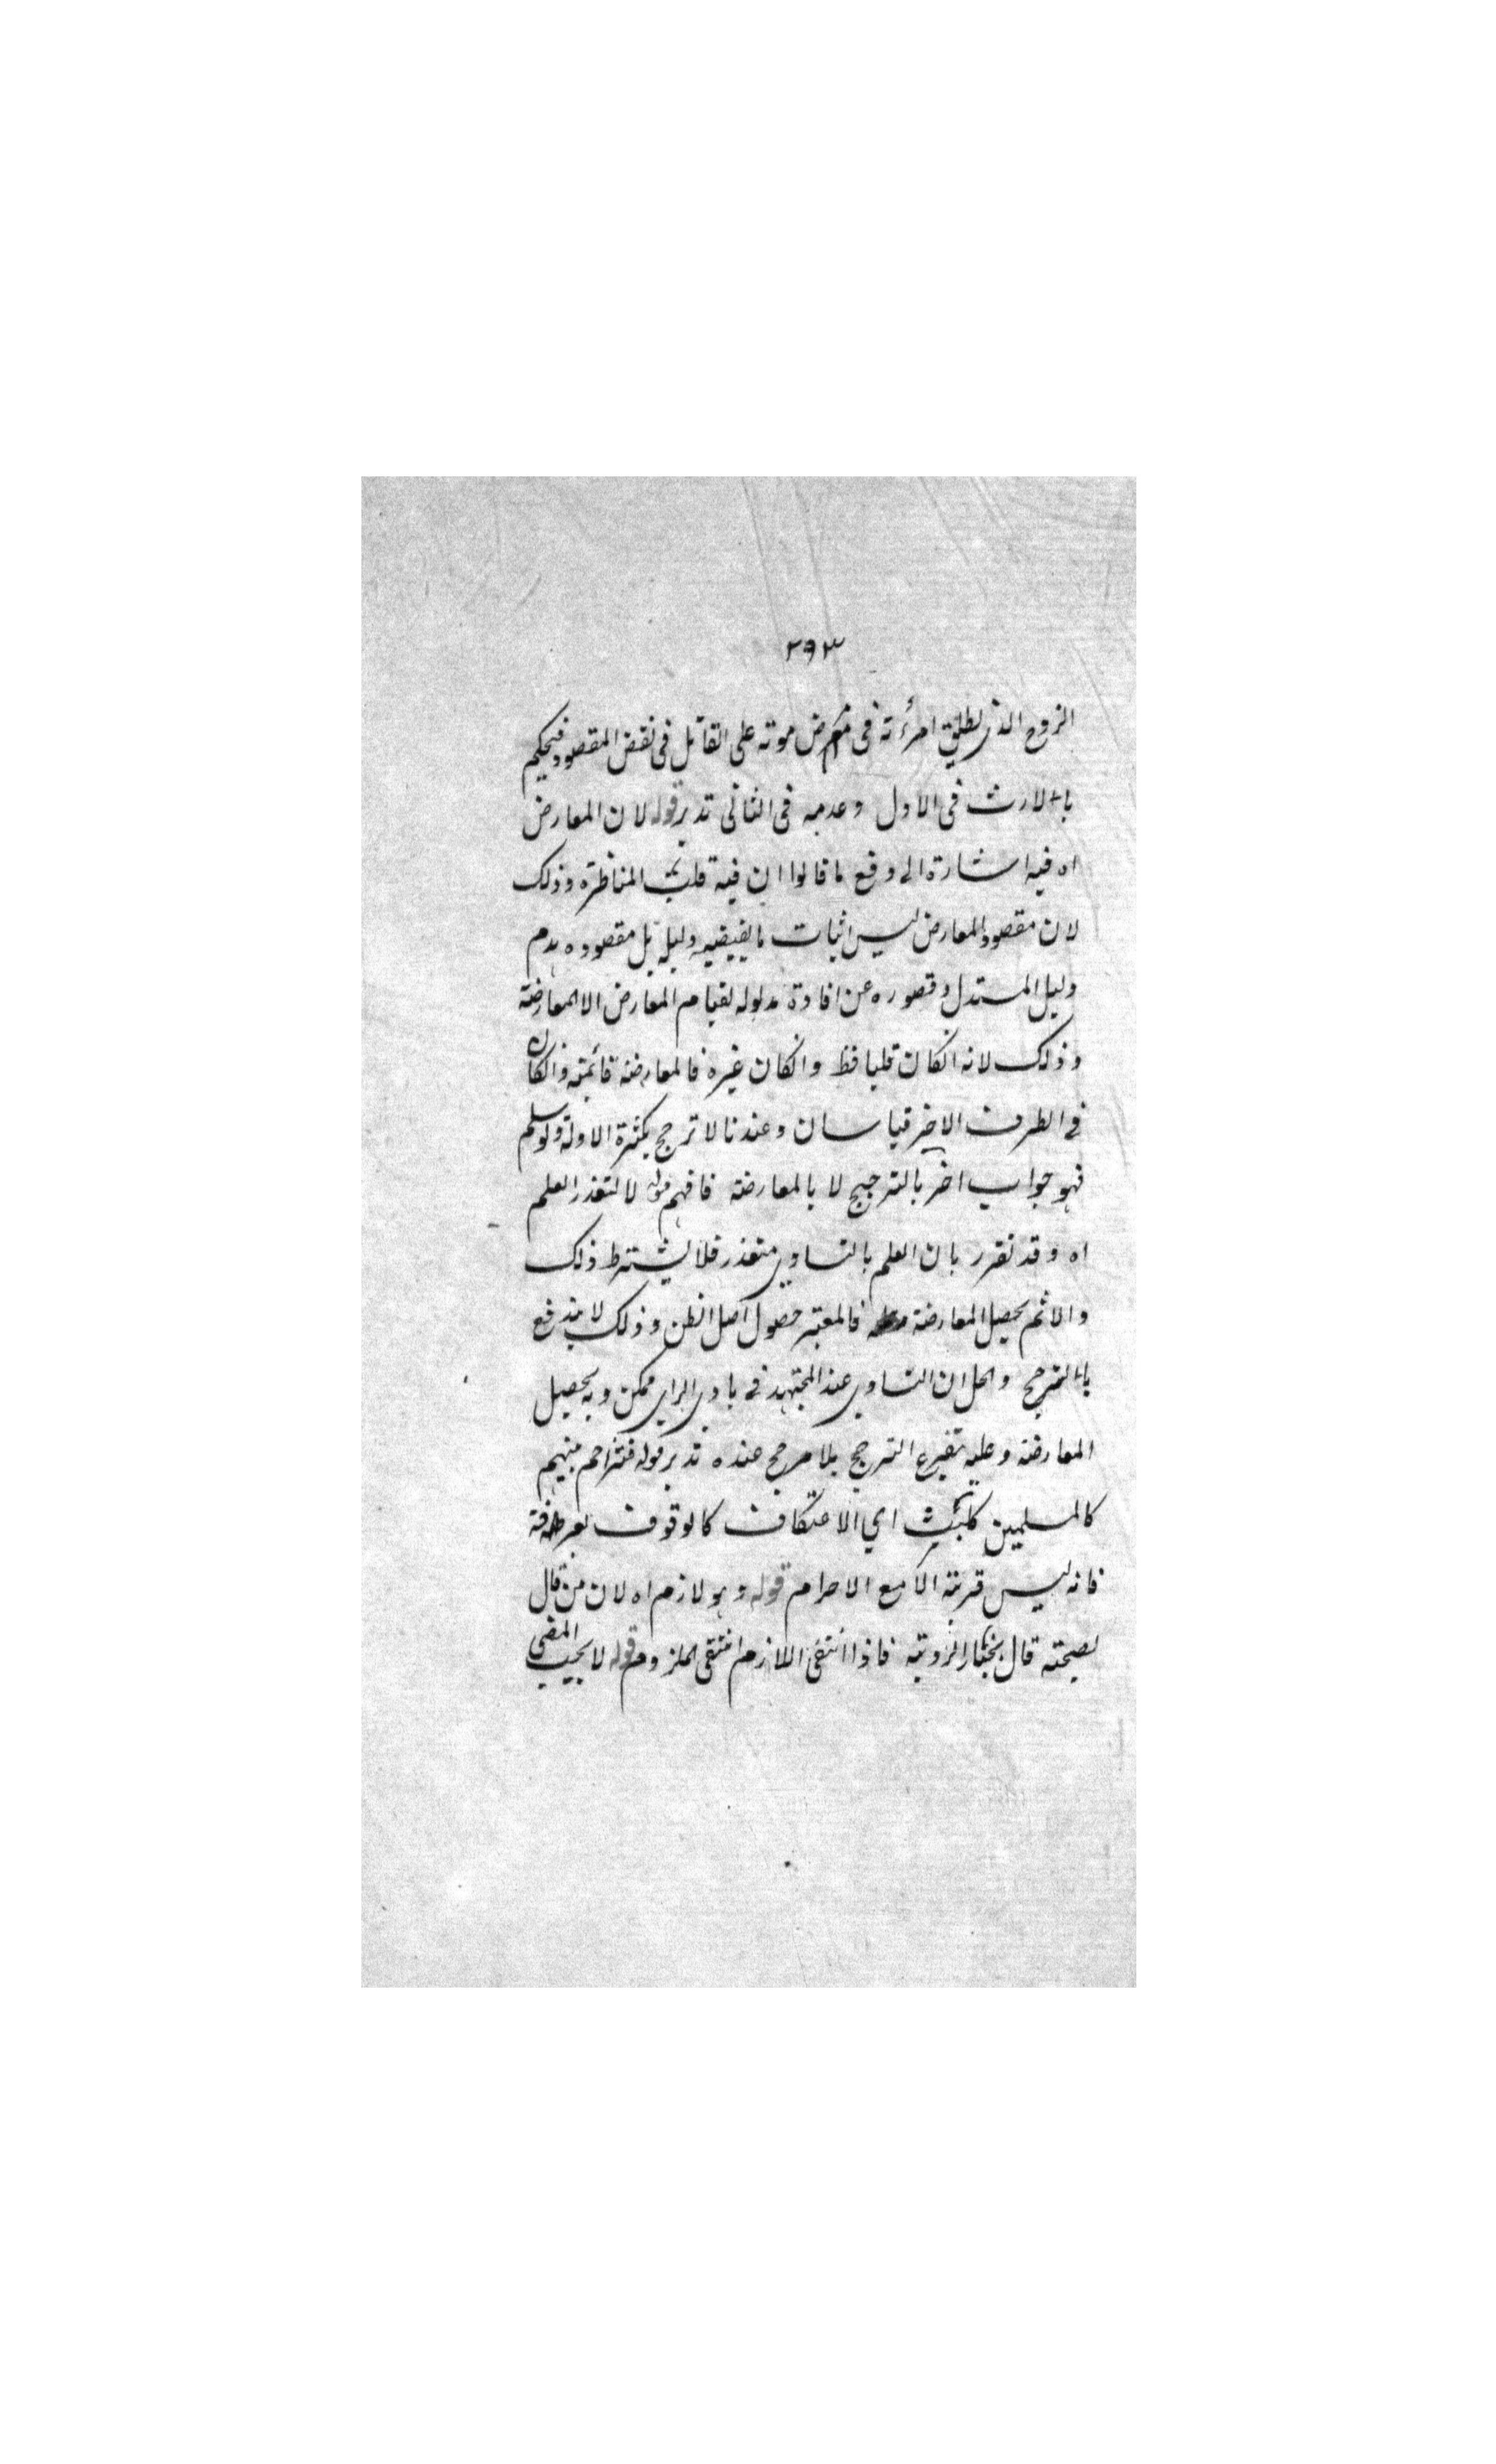 ٢٩٣
الزوج الذي يطلق امرأته فى مرض موته على القاتل فى نقض المقصود فيحكم
بالارث فى الاول وعدمه فى الثانى تدبر قوله لان المعارض
اه فيه اشارة الى دفع ما قالوا ان فيه قلب المناظرة وذلك
لان مقصود المعارض ليس اثبات ما يقتضيه دليله بل مقصوده هدم
دليل المستدل وقصوره عن افادة مدلوله لقيام المعارض الا المعارضة
وذلك لانه انكان قلبا فظ وانكان غيره فالمعارضة قائمة وانكان
فى الطرف الاخر قياسان وعندنا لا ترجح بكثرة الادلة ولو سلم
فهو جواب اخر بالترجيح لا بالمعارضة فافهم قوله لا لتعذر العلم
اه وقد تقرر بان العلم بالتساوي متعذر فلا يشترط ذلك
والا لم يحصل المعارضة فالمعتبر حصول اصل الظن وذلك لا يندفع
بالترجيح والحل ان التساوي عند المجتهد فى بادي الراي ممكن وبه يحصل
المعارضة وعليه يتفرع الترجيح بلا مرجح عنده تدبر قوله فتزاحم منهم
كالمسلمين كلبث اي الاعتكاف كالوقوف بعرفة
فانه ليس قربة الا مع الاحرام قوله وهو لازم اه لان من قال
بصحته قال بخيار الروية فاذا انتفى اللازم انتفى الملزوم قوله لا يجب المضى